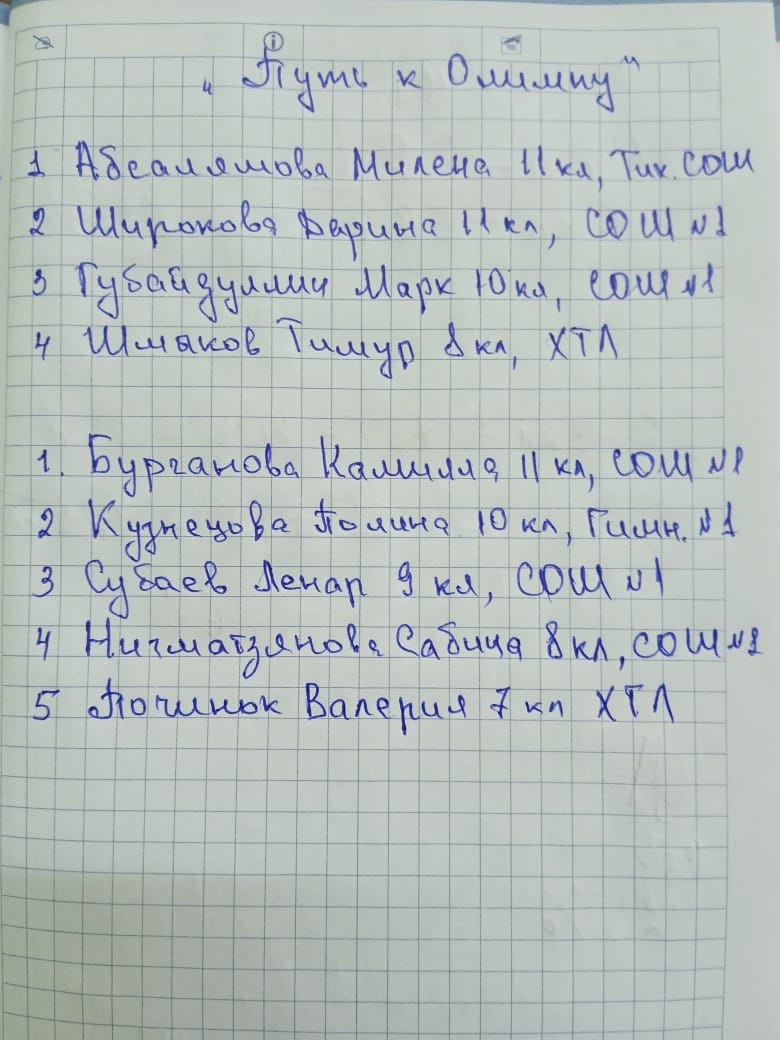 "Путь к Олимпу"
1 Абсалямова Милена 11 кл, Тик. СОШ
2 Широкова Дарина 11 кл, СОШ №1
3 Губайдуллин Марк 10 кл, СОШ №1
4 Шмаков Тимур 8 кл, ХТЛ
1. Бурганова Камилла 11 кл, СОШ №1
2 Кузнецова Полина 10 кл, Гимн. №1
3 Субаев Ленар 9 кл, СОШ №1
4 Нигматзянова Сабина 8 кл, СОШ №2
5 Починок Валерия 7 кл ХТЛ